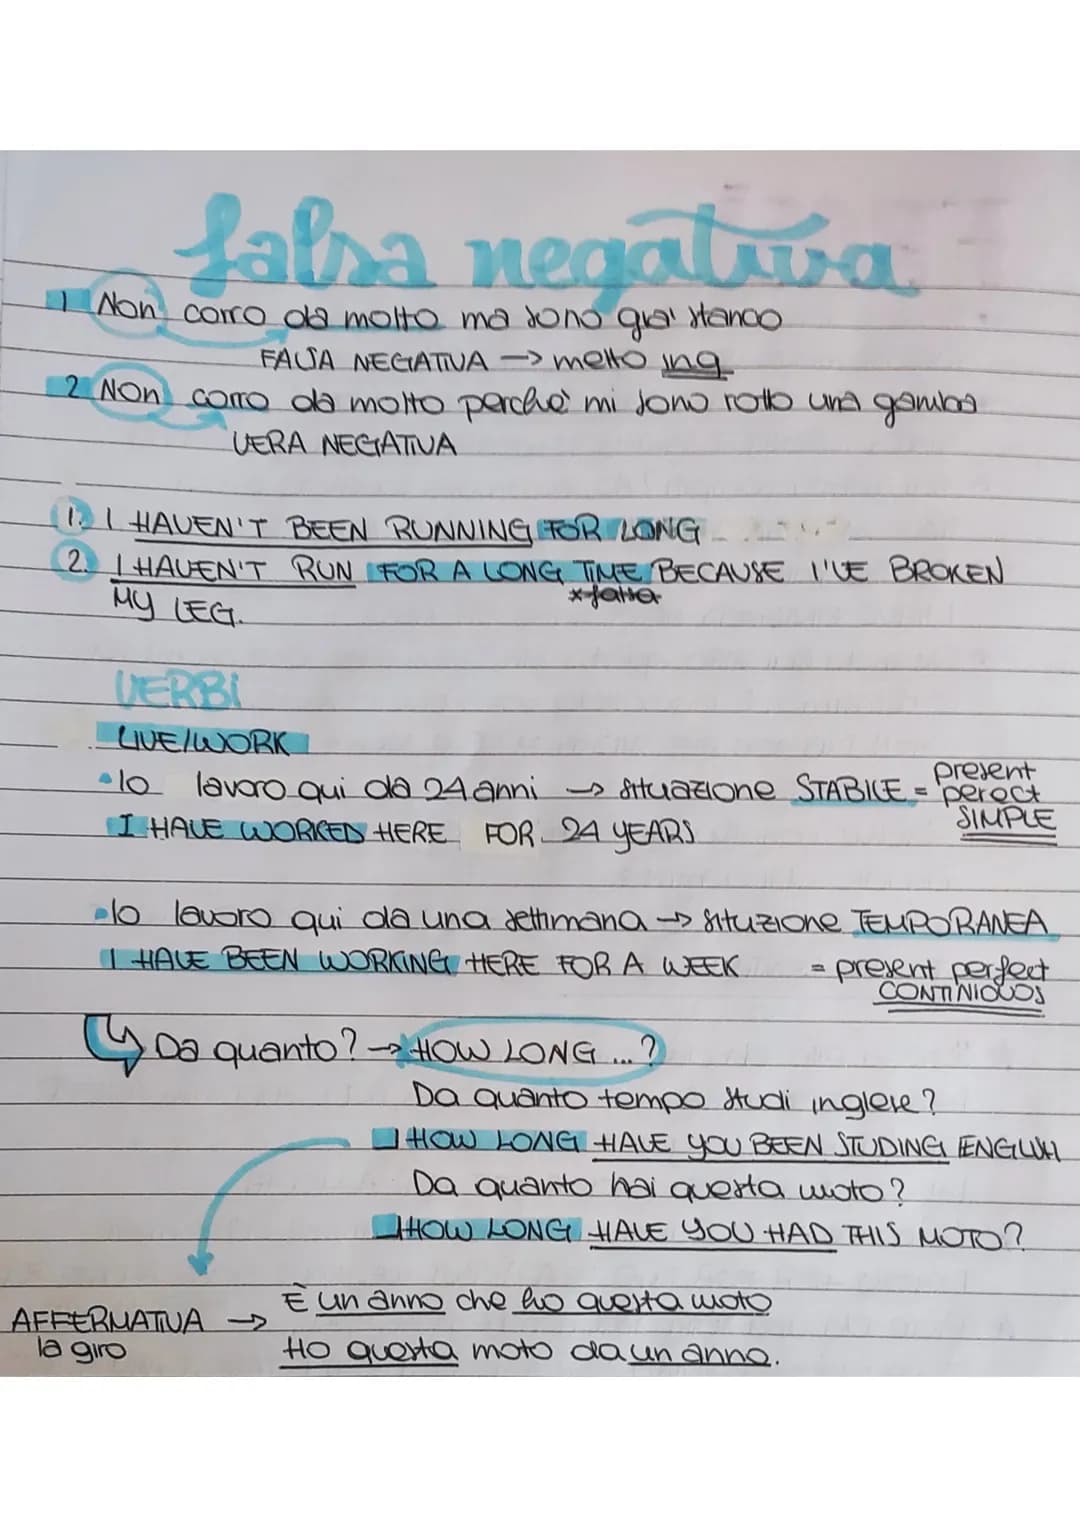 falsa negativa
1 Non corro da molto ma sono gia' stanco
FALSA NEGATIVA → metto ing
2 Non corro da molto perche' mi sono rotto una gamba
VERA NEGATIVA
1. I HAVEN'T BEEN RUNNING FOR LONG
2. I HAVEN'T RUN FOR A LONG TIME BECAUSE I'VE BROKEN
MY LEG.
VERBI
LIVE/WORK
•Io lavoro qui da 24 anni → situazione STABILE = present perect SIMPLE
I HAVE WORKED HERE FOR 24 YEARS
•Io lavoro qui da una settimana → situzione TEMPORANEA
I HAVE BEEN WORKING HERE FOR A WEEK = present perfect
CONTINIOUOS
Da quanto? → HOW LONG ...?
Da quanto tempo studi inglese?
HOW LONG HAVE YOU BEEN STUDING ENGLISH
Da quanto hai questa moto?
HOW LONG HAVE YOU HAD THIS MOTO?
AFFERMATIVA → È un anno che ho questa moto
la giro Ho questa moto da un anno.